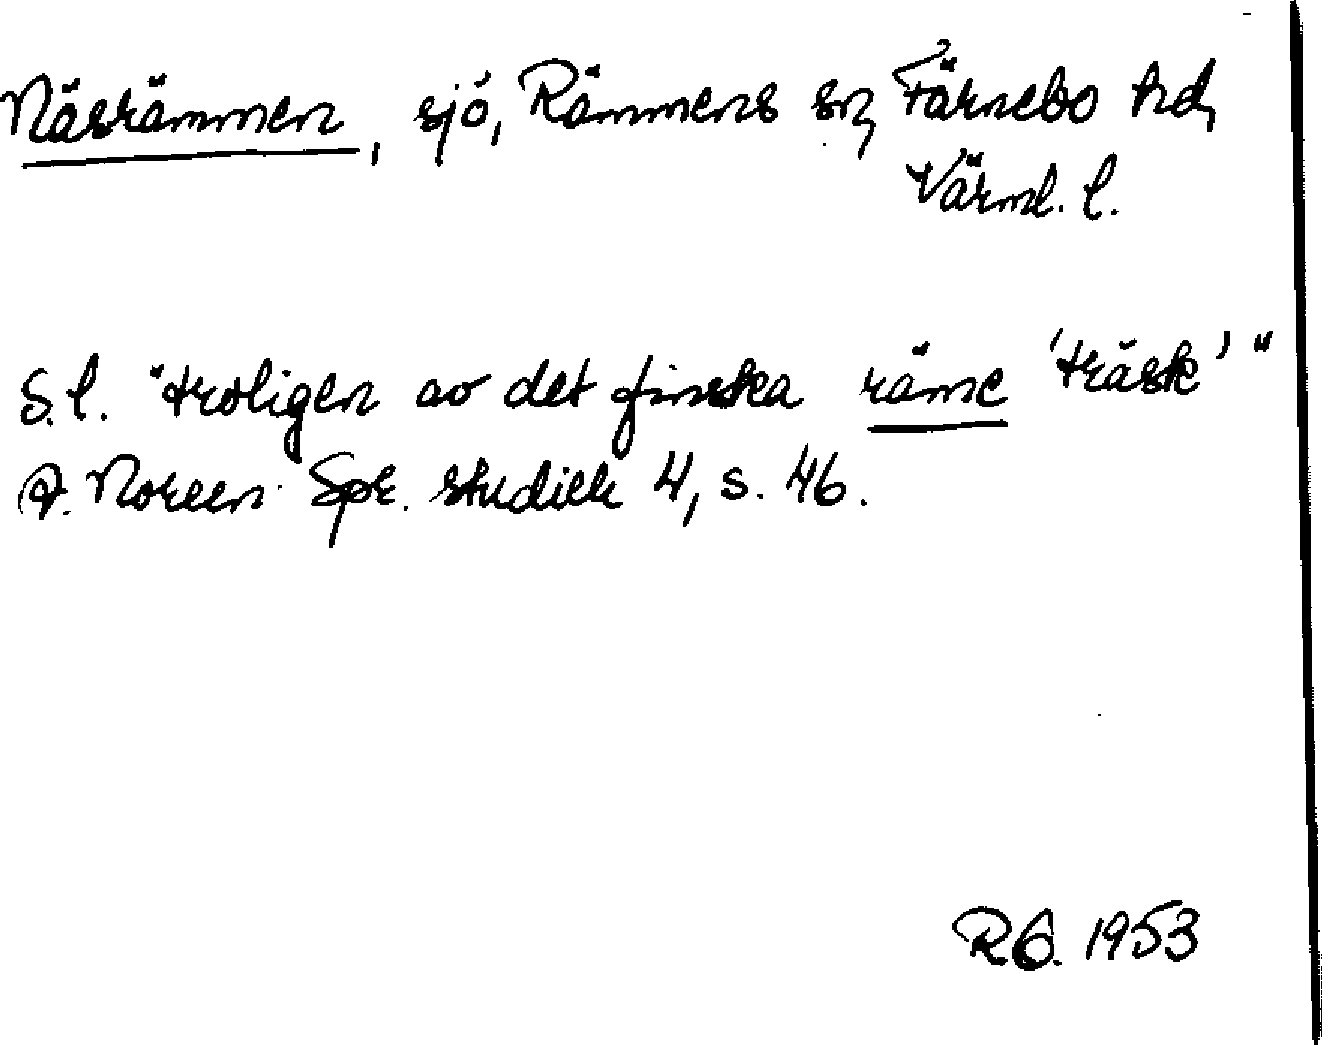 Näsrämmen, sjö, Rämmens sn, Färnebo hd,
Värml. l.
S.l. "troligen av det finska räme 'träsk'"
A. Noreen Spr. studier 4, s. 46.
RO. 1953